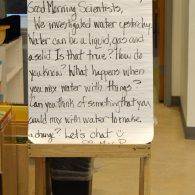 Good Morning Scientists,
We investigated water yesterday.
Water can be a liquid, gas and
a solid. Is that true? How do
you know? What happens when
you mix water with things?
Can you think of something that you
could mix with water to make
a change? Let's chat